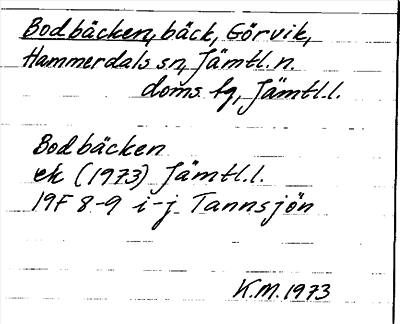 Bodbäcken, bäck, Görvik,
Hammerdals sn, Jämtl. n.
doms fg, Jämtl. l.
Bodbäcken
ek (1973) Jämtl. l.
19F 8-9 i-j Tannsjön
K.M. 1973